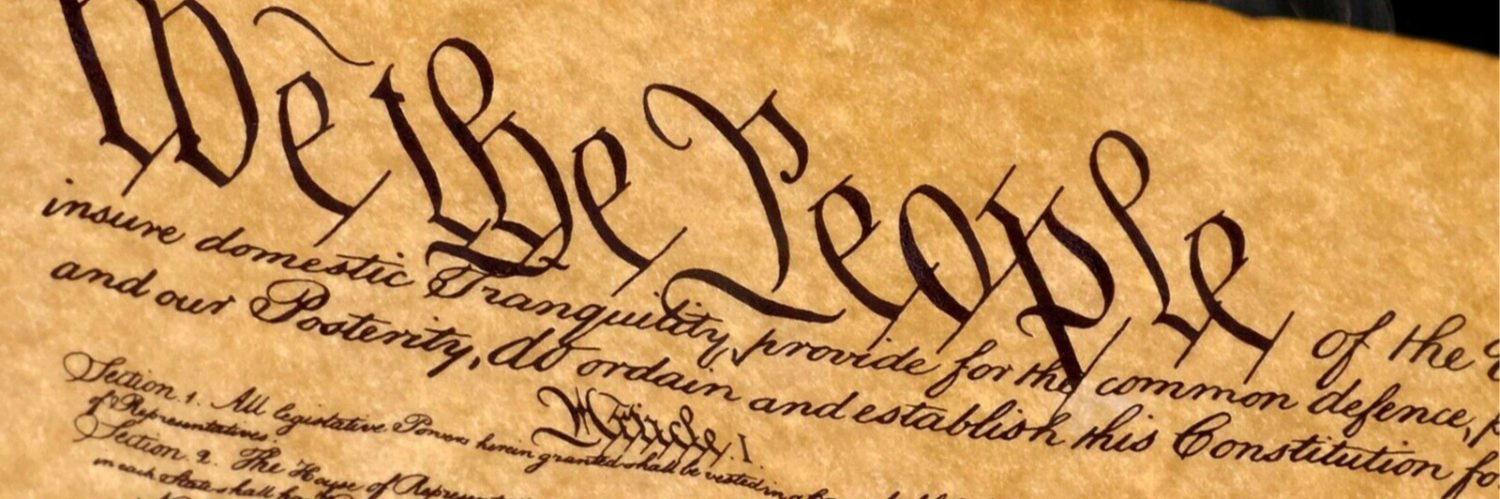 We the People of the
insure domestic Tranquility, provide for the common defence,
and our Posterity, do ordain and establish this Constitution
Article. I.
Section. 1. All legislative Powers herein granted shall be vested in a
of Representatives.
Section. 2. The House of
in each State shall